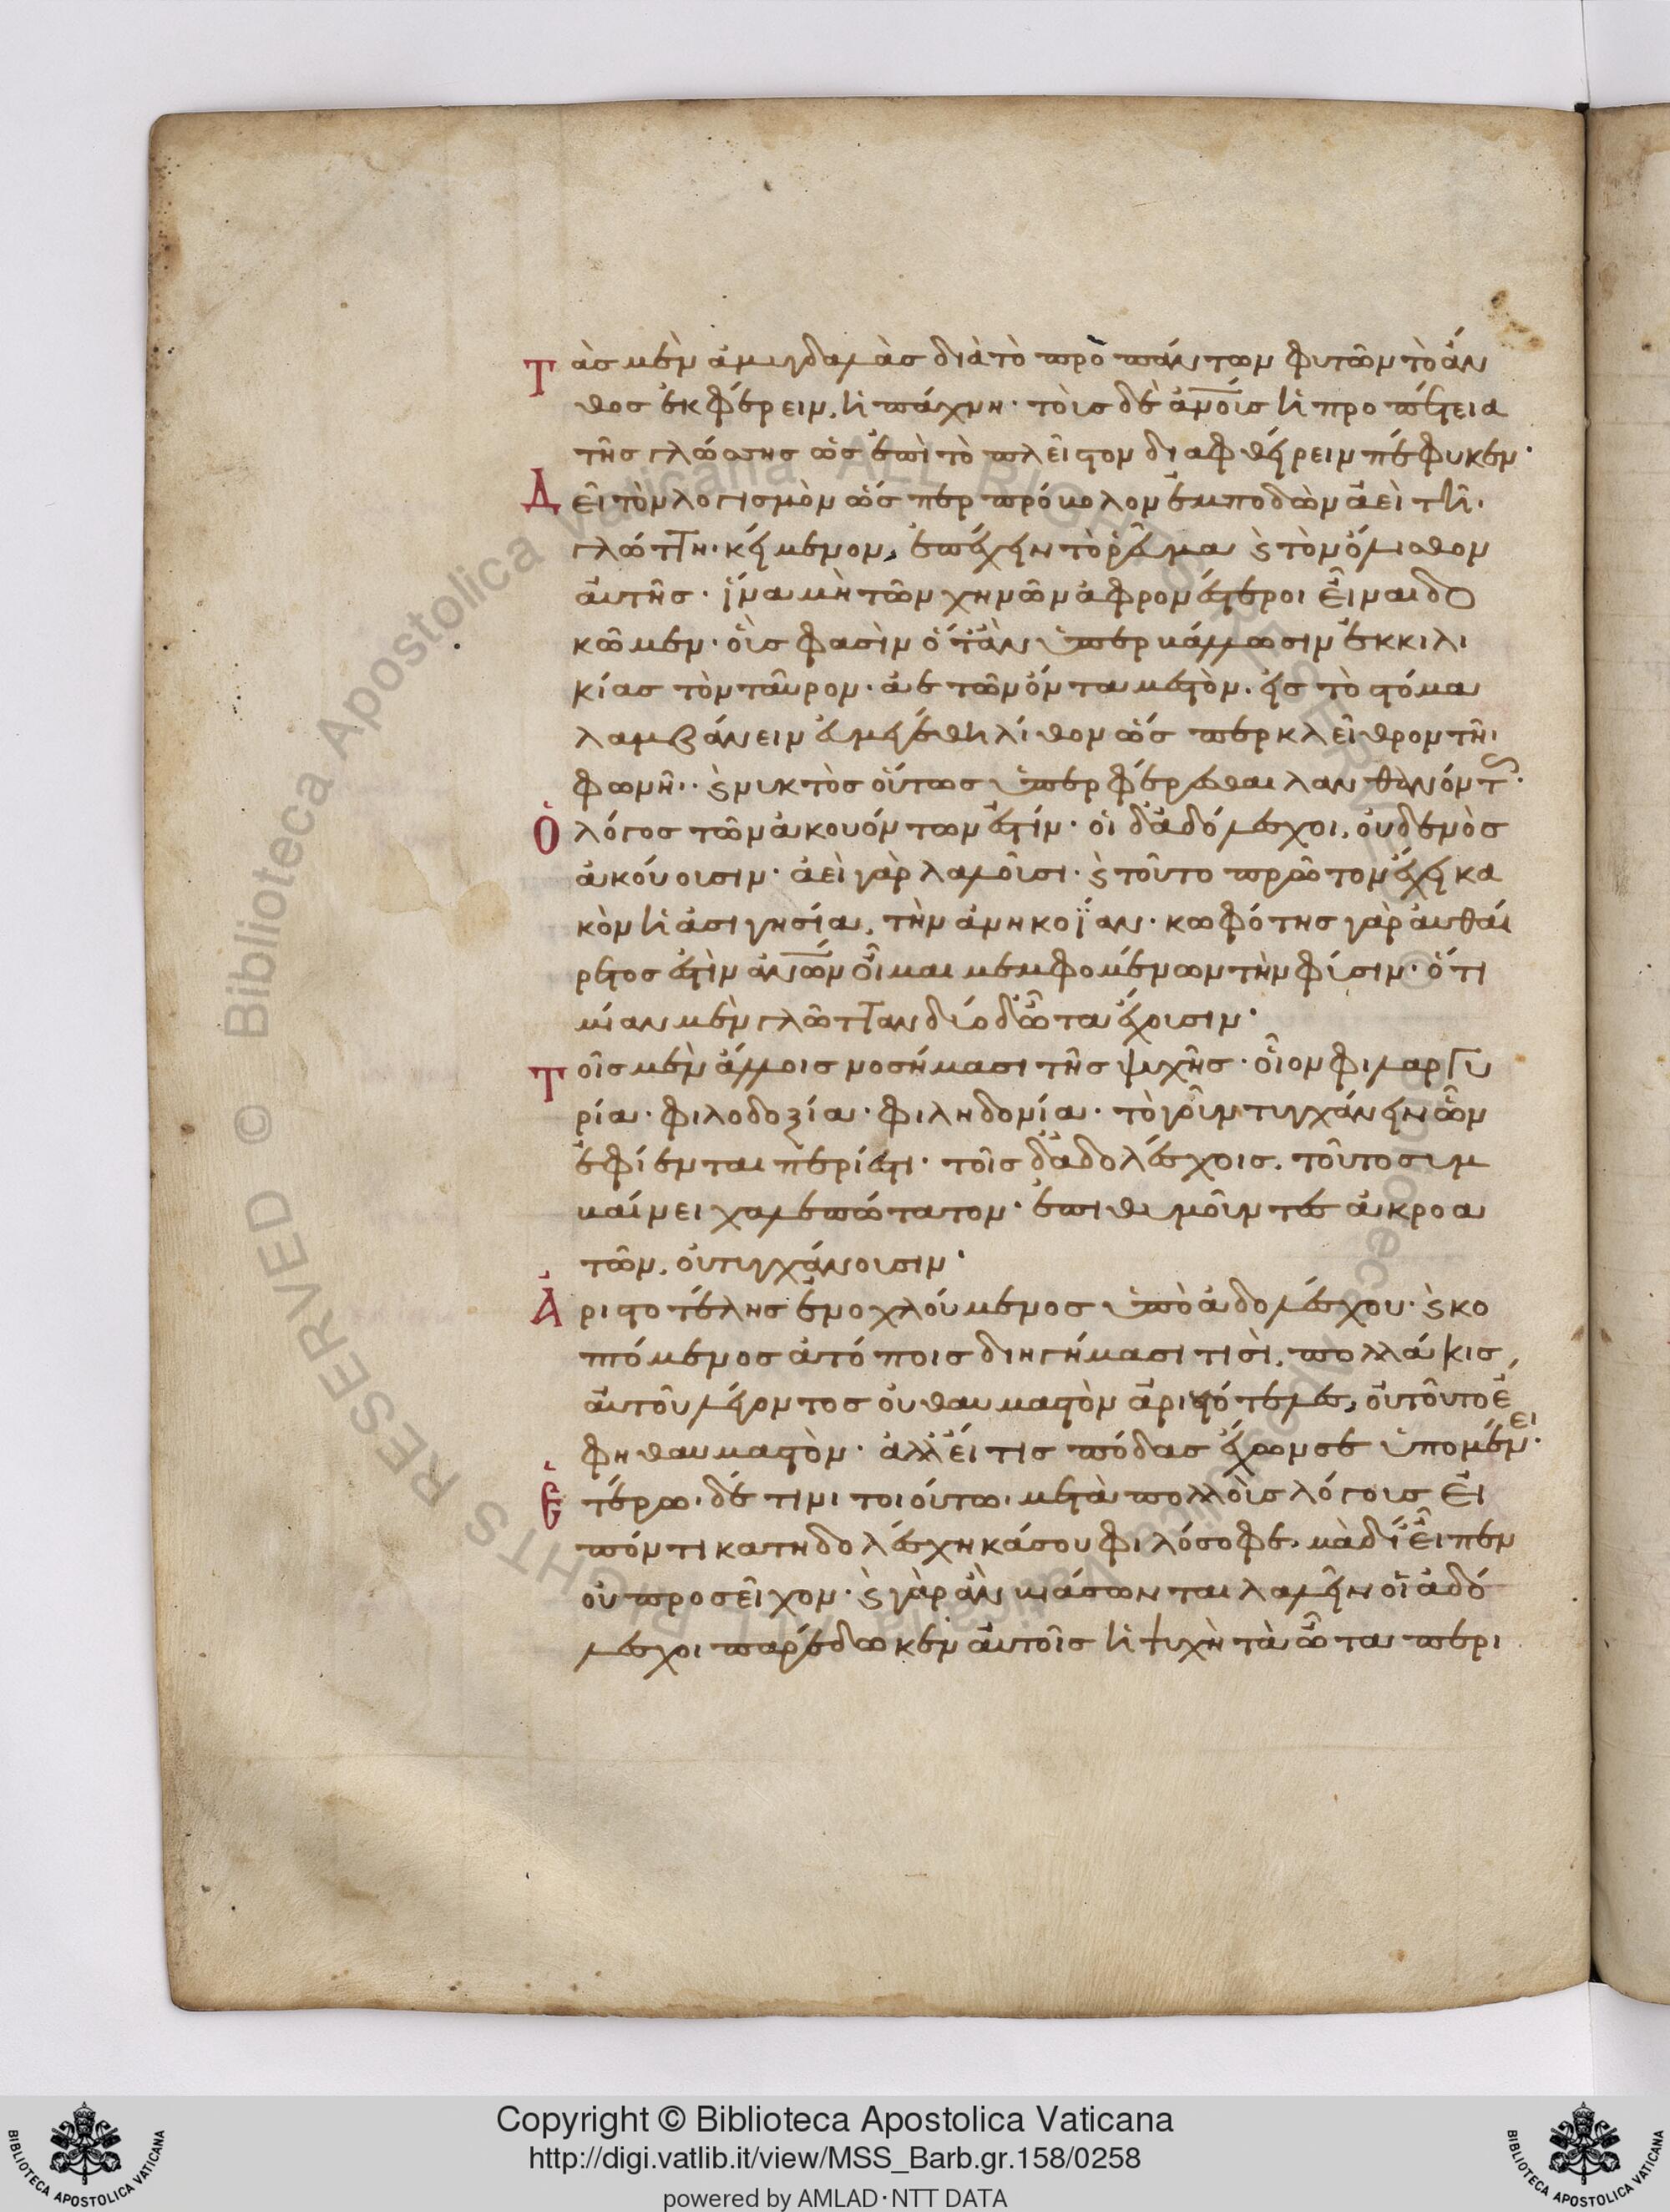 Τὰσ μὲν ἀμυγδαλὰσ διὰ τὸ πρὸ πάντων φυτῶν τὸ ἄν
θοσ ἐκφέρειν, ἡ πάχνη· τοὶσ δὲ ἀν̅ο̅ίσ ἡ προπέτεια
τῆσ γλώσσησ ὡσ ἐπὶ τὸ πλεῖστον διαφθείρειν πέφυκεν·
Δεῖ τὸν λογισμὸν ὥσπερ πρόβολον ἐμποδὼν ἀεὶ τῆ·
γλώττη· κείμενον, ἐπέχειν τὸ ῥεῦμα ϗ τὸν ὄλισθον
αὐτῆσ· ἵνα μὴ τῶν χηνῶν ἀφρονέστεροι εἶναι δο
κῶμεν· οἷσ φασὶν ὅταν ὑπερβάλλωσιν ἐκ κιλι
κίασ τὸν ταῦρον· ἀετῶν ὄντα μεστὸν· εἰσ τὸ στόμα
λαμβάνειν εὐμεγέθη λίθον ὥσπερ κλεῖθρον τῆ·
φωνῆ·· ϗ νυκτὸσ οὕτωσ ὑπερφέρεσθαι λανθάνοντ·
Ὁ λόγοσ τῶν ἀκουόντων ἐστίν· οἱ δ' ἀδόλεσχοι, οὐδενὸσ
ἀκούουσιν· ἀεὶ γὰρ λαλοῦσι· ϗ τοῦτο πρῶτον ἔχει κα
κὸν ἡ ἀσιγησία, τὴν ἀνηκοΐαν· κωφότησ γὰρ αὐθαί
ρετοσ ἐστὶν ἀν̅ω̅ν οἶμαι μεμφομένων τὴν φύσιν· ὅτι
μίαν μὲν γλῶτταν δύο δ' ὦτα ἔχουσιν·
Τοῖσ μὲν ἄλλοισ νοσήμασι τῆσ ψυχῆσ· οἷον φιλαργυ
ρία· φιλοδοξία· φιληδονία· τὸ γοῦν τυγχάνειν ὧν
ἐφίενται περίεστι· τοῖσ δ' ἀδολέσχοισ, τοῦτο συμ
βαίνει χαλεπώτατον· ἐπιθυμοῦντεσ ἀκροα
τῶν, οὐ τυγχάνουσιν·
Ἀριστοτέλησ ἐνοχλούμενοσ ὑπὸ ἀδολέσχου· ϗ κο
πτόμενοσ ἀτόποισ διηγήμασι τισὶ, πολλάκισ,
αὐτοῦ λέγοντοσ οὐ θαυμαστὸν ἀριστότελεσ, οὐ τοῦτο ἔ
φη θαυμαστὸν· ἀλλ' εἴ τισ πόδασ ἔχων σὲ ὑπομένει·
Ἑτέρω· δέ τινι τοιούτω· μετὰ πολλοὺσ λόγουσ εἰ
πόντι κατηδολέσχηκά σου φιλόσοφε, μὰ δί' εἶπεν
οὐ προσεῖχον· ϗ γὰρ ἂν βιάσωνται λαλεῖν οἱ ἀδό
λεσχοι παρέδωκεν αὐτοῖσ ἡ ψυχὴ τὰ ὦτα περι
Copyright © Biblioteca Apostolica Vaticana
http://digi.vatlib.it/view/MSS_Barb.gr.158/0258
powered by AMLAD·NTT DATA